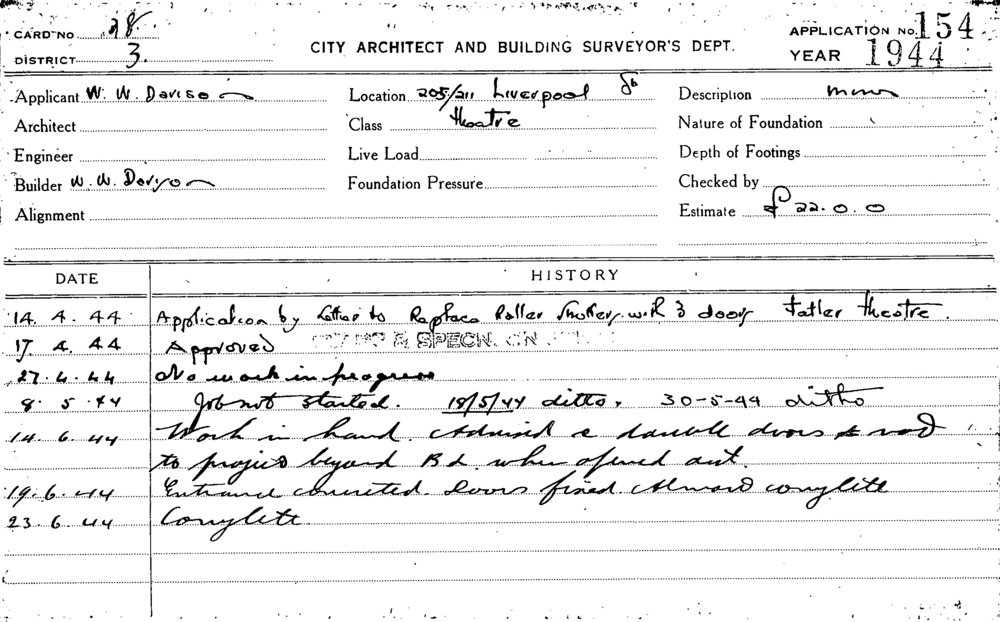 CARD NO 28
DISTRICT 3.
CITY ARCHITECT AND BUILDING SURVEYOR'S DEPT.
APPLICATION No. 154
YEAR 1944
Applicant W. W. Davison
Location 205/211 Liverpool St
Description minor
Architect
Class Theatre
Nature of Foundation
Engineer
Live Load
Depth of Footings
Builder W. W. Davison
Foundation Pressure
Checked by
Alignment
Estimate £ 22.0.0
DATE HISTORY
14. 4. 44 Application by letter to Replace Roller Shutters with 3 doors Tatler Theatre.
17. 4. 44 Approved & SPECN. IN
27. 4. 44 No work in progress
8. 5. 44 Job not started. 18/5/44 ditto, 30-5-44 ditto
14. 6. 44 Work in hand. Advised double doors not
to project beyond B L when opened out.
19. 6. 44 Entrance concreted. Doors fixed. Almost complete
23. 6. 44 Complete